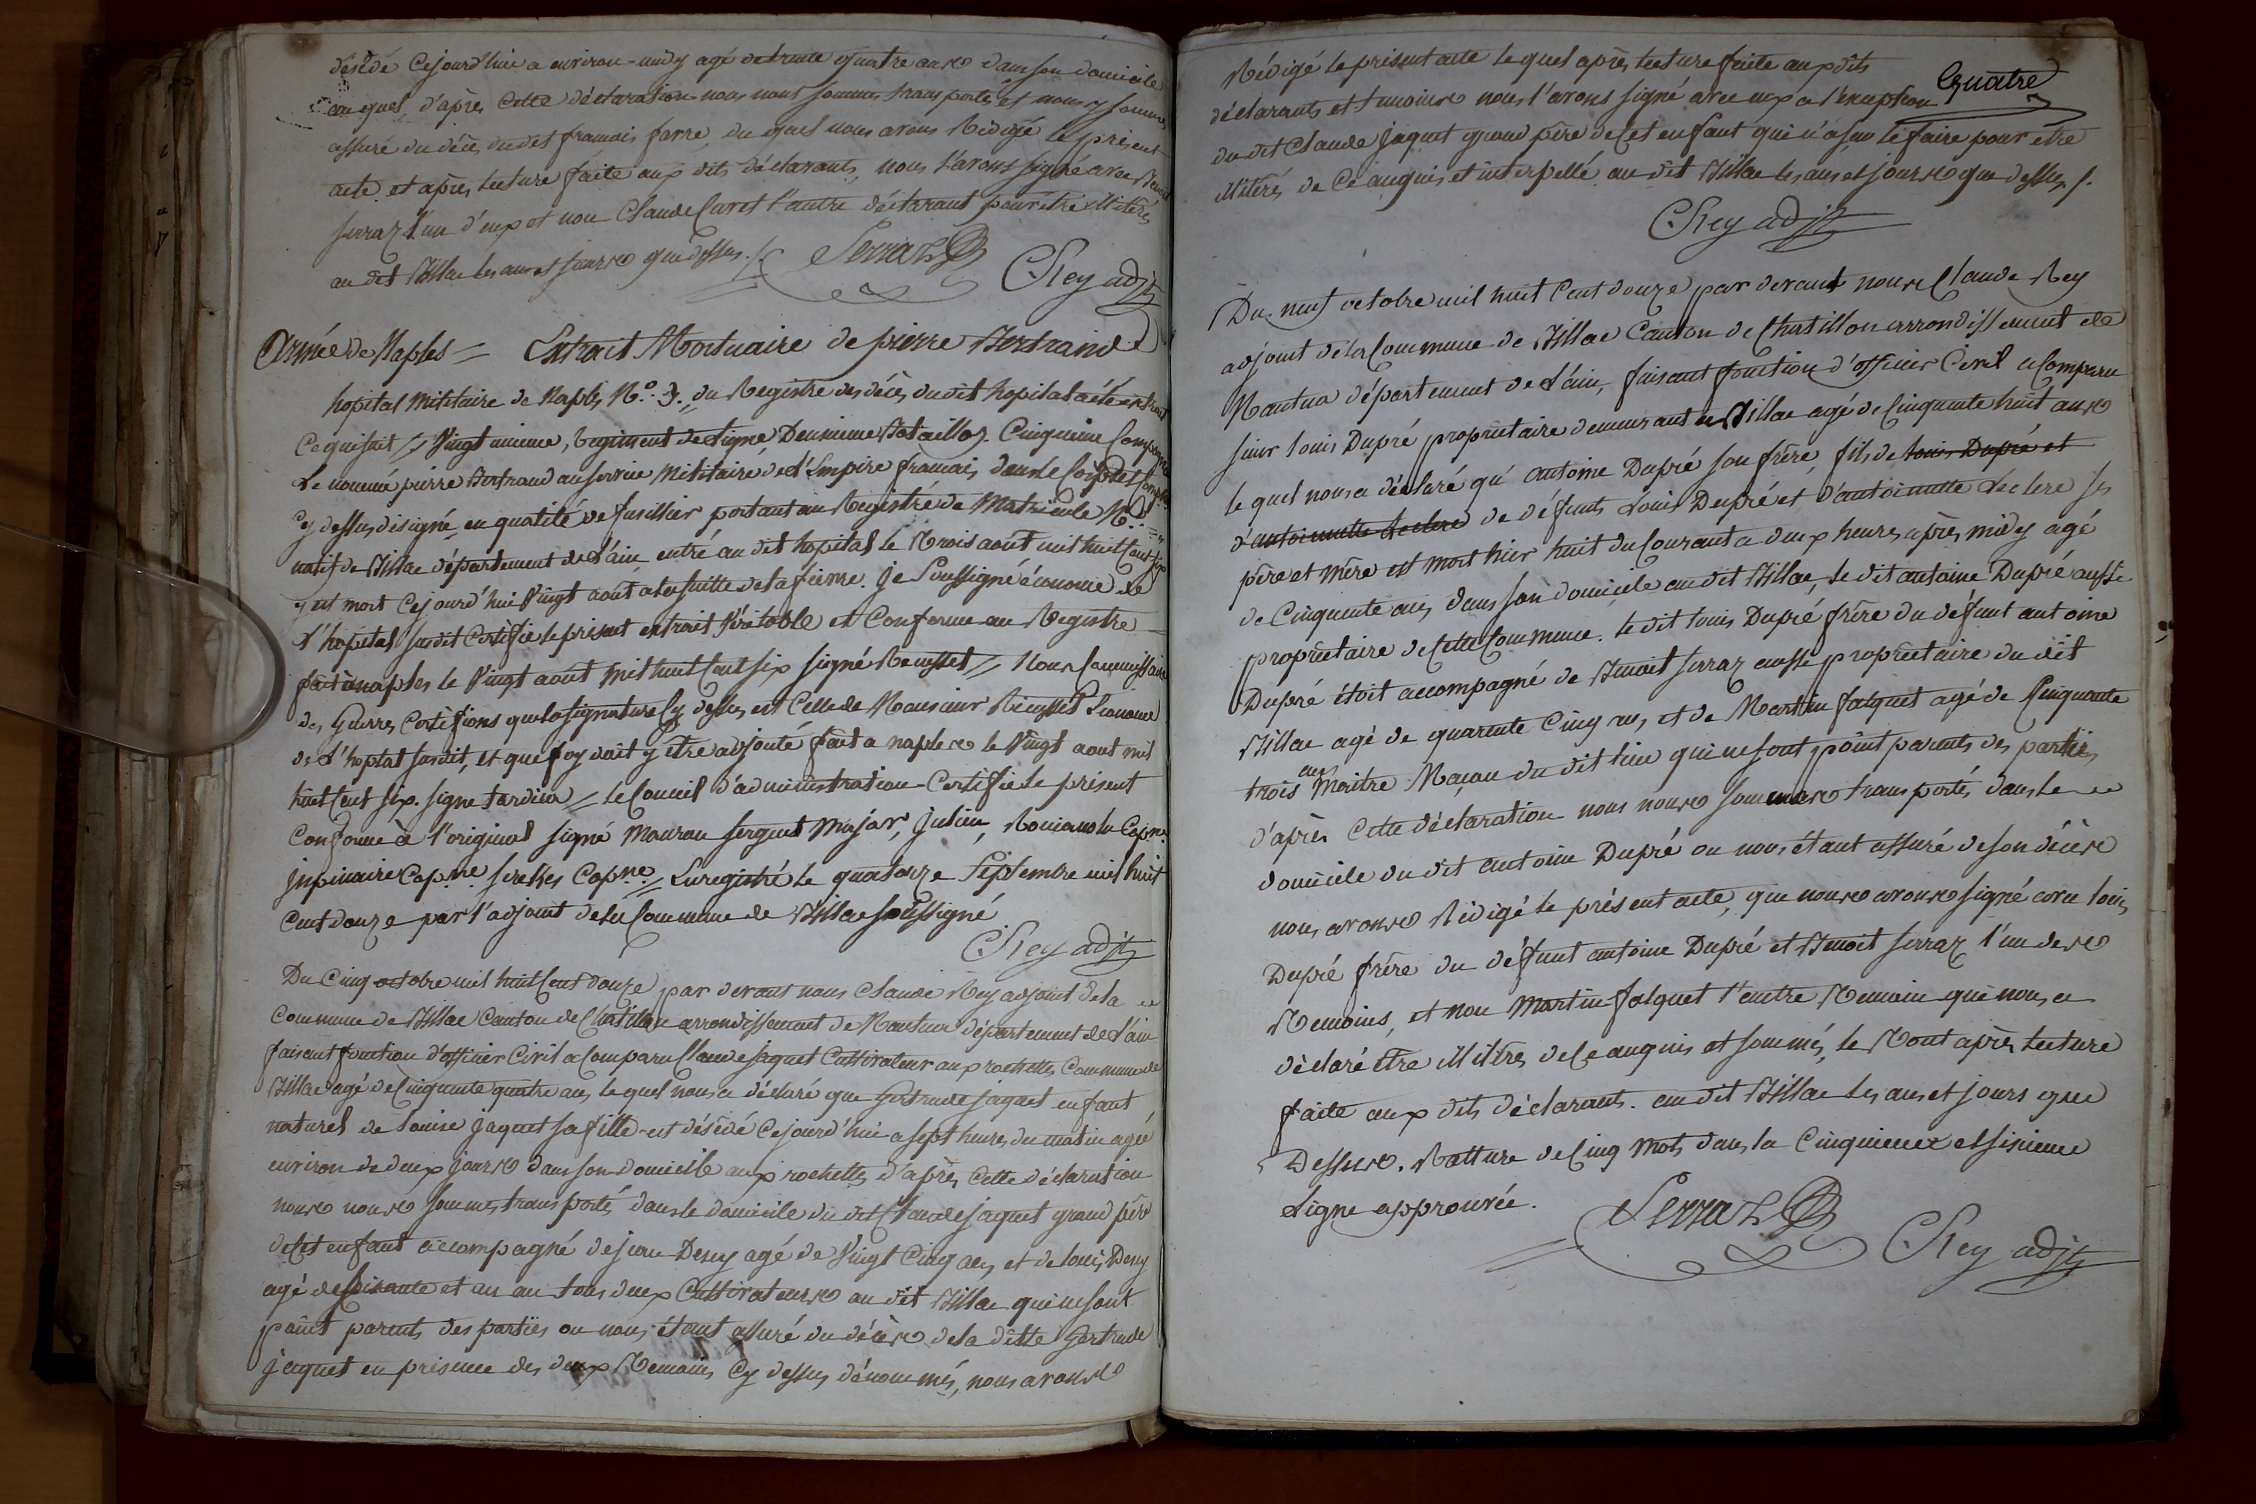 désédé Cejourd'hui a environ midy agé de trente quatre ans dans son domicile
au quel d'après Cette déclaration nous nous sommes transportés et nous y sommes
assuré du décès du dit francois farre, du quel nous avons Rédigé le présent
acte et après lecture faite aux dits déclarants, nous l'avons signé avec Benoit
serraz l'un d'eux et non Claude Curet l'autre déclarant pour être illiteré
au dit Billiae les ans et jours que dessus ./.
Serraz CRey adjt
Armée de Naples = Extrait Mortuaire de pierre Bertrand
hopital Militaire de Naples N.º 3. du Registre des décès du dit hopital a été extrait
Cequisuit // Vingt unieme, Regiment de Ligne Deuxieme Bataillon. Cinquieme Compagnie
Le nommé pierre Bertrand au service Militaire de l'Empire francais, dans le Corps et Compie
Cy dessus désigné en qualité de fusillier portant au Registre de Matricule N.º =
natif de Billiae département de L'ain, entré au dit hopital le Trois août mil huit Cent six
y est mort Cejourd'hui Vingt août a la suitte de la fievre. Je Soussigné économe de
L'hopital susdit Certifie le présent extrait Véritable et Conforme au Registre
fait à naples le Vingt août mil huit Cent six signé Reusset // Nous Commissaire
des Guerres Certifions que la signature Cy dessus est Celle de Monsieur Reusset Econome
de L'hoptal susdit, et que foy doit y être adjouté fait a naples le Vingt aout mil
huit Cent six. signé tardieu // le Conseil d'administration Certifie le présent
Conforme à l'original signé Mauran sergent Major, Julien, Capne.
Capne. Capne. // Enregistré le quatorze Septembre mil huit
Cent douze par l'adjoint de la Commune de Billiae soussigné
CRey adjt
Du Cinq octobre mil huit Cent douze, par devant nous Claude Rey adjoint de la
Commune de Billiae Canton de Chatillon arrondissement de Nantua département de L'ain
faisant fonction d'officier Civil a Comparu Claude Jaquet Cultivateur aux rochettes Commune de
Billiae agé de Cinquante quatre ans, le quel nous a déclaré que Gertrude Jaquet enfant
naturel de Louise Jaquet sa fille est désédé Cejourd'hui a sept heures du matin agée
environ de deux jours dans son domicile aux rochettes, d'après Cette déclaration
nous nous sommes transporté dans le domicile du dit Claude Jaquet grand père
de Cet enfant accompagné de jean Deny agé de Vingt Cinq ans, et de Louis Deny
agé de soixante et un an tous deux Cultivateurs au dit Billiae qui ne sont
point parents des parties ou nous étant assuré du décès de la ditte Gertrude
Jaquet en présence des deux Temoins Cy dessus dénommés, nous avons
Quatre
Rédigé le présent acte le quel après lecture faite aux dits
déclarants et temoins nous l'avons signé avec eux a l'exception
du dit Claude Jaquet grand père de Cet enfant qui n'a su le faire pour être
illiteré, de Ce anquis et interpellé au dit Billiae les ans et jours que dessus ./.
CRey adjt
Du neuf octobre mil huit Cent douze par devant nous Claude Rey
adjoint de la Commune de Billiae Canton de Chatillon arrondissement de
Nantua département de L'ain, faisant fonction d'officier Civil a Comparu
sieur Louis Dupré propriétaire demeurant a Billiae agé de Cinquante huit ans
le quel nous a déclaré qu' antoine Dupré son frère fils de Louis Dupré et
d'antoinette Leclerc de défunts Louis Dupré et d'antoinette Leclerc ses
père et mère est mort hier huit du Courant a deux heures après midy agé
de Cinquante ans, dans son domicile au dit Billiae, le dit antoine Dupré aussi
propriétaire de Cette Commune. le dit Louis Dupré frère du défunt antoine
Dupré étoit accompagné de Benoit serraz aussi propriétaire du dit
Billiae agé de quarente Cinq ans, et de Martin falquet agé de Cinquante
trois ans Maitre Maçon du dit lieu qui ne sont point parents des parties,
d'après Cette déclaration nous nous sommes transportés dans le
domicile du dit antoine Dupré ou nous étant assuré de son décès
nous avons Rédigé le présent acte, que nous avons signé avec Louis
Dupré frère du défunt antoine Dupré et Benoit serraz l'un des
Temoins, et non Martin falquet l'autre Temoin que nous a
déclaré être illiteré, de Ce anquis et sommés, le Tout après lecture
faite aux dits déclarants. au dit Billiae les ans et jours que
Dessus. Ratture de Cinq mots dans la Cinquieme et sixieme
Ligne approuvée.
Serraz CRey adjt